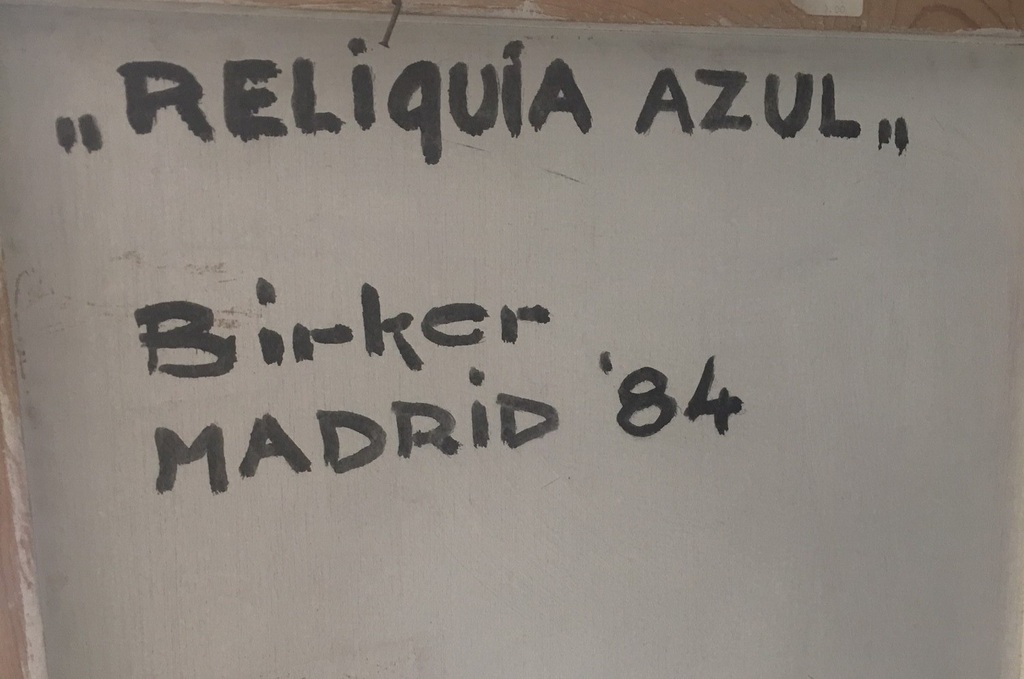 „RELiQUiA AZUL„
Birker
MADRiD '84